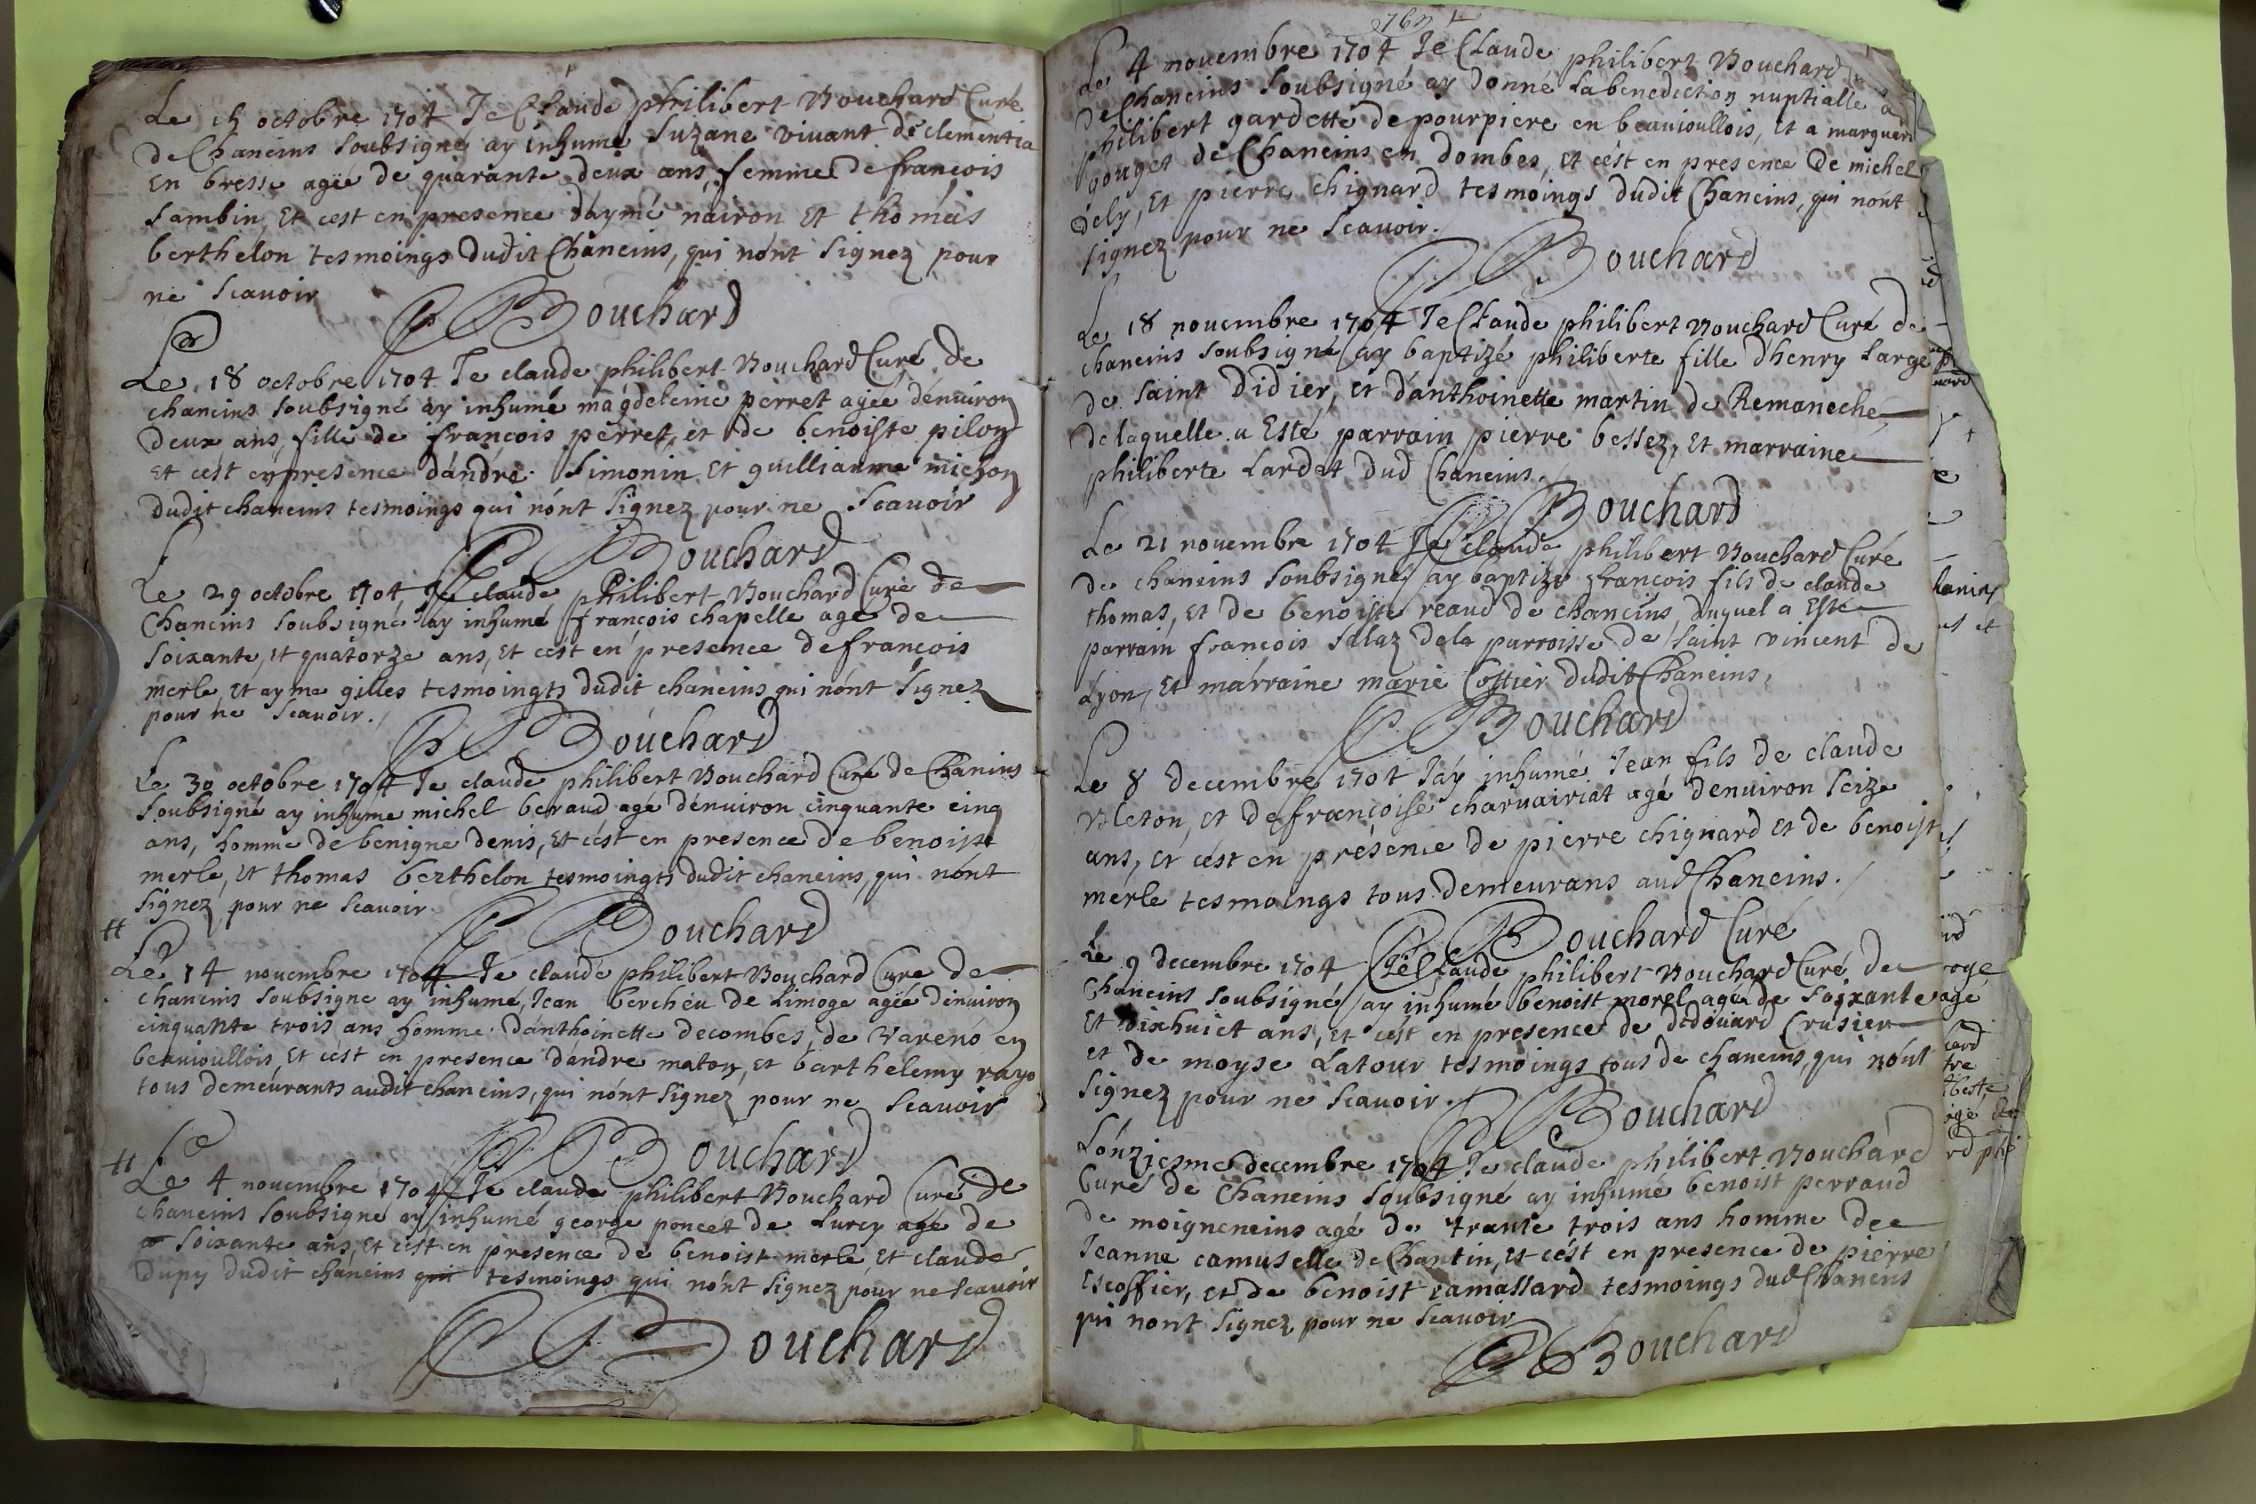 Le 15 octobre 1704 Je Claude philibert Bouchard Curé
de Chaneins soubsigné ay inhumé Suzane vivant de clementia
En bresse agée de quarante deux ans, femme de françois
Sambin, Et c'est en presence d'aymé nairon Et thomas
berthelon tesmoings dudit Chaneins, qui n'ont signez pour
ne scavoir
Bouchard
Le 18 octobre 1704 Je claude philibert Bouchard Curé de
chaneins soubsigné ay inhumé magdeleine perret agée d'enuiron
deux ans, fille de françois perret, et de benoiste pilon
et c'est en presence d'andré Simonin Et guilliaume michon
dudit chaneins tesmoings qui n'ont signez pour ne scavoir
Bouchard
Le 29 octobre 1704 Je claude philibert Bouchard Curé de
Chaneins soubsigné ay inhumé françois chapelle agé de
soixante, et quatorze ans, Et c'est en presence de françois
merle, et ayme gilles tesmoingts dudit chaneins qui n'ont signez
pour ne scavoir.
Bouchard
Le 30 octobre 1704 Je claude philibert Bouchard Curé de Chanins
soubsigné ay inhumé michel beraud agé d'enuiron cinquante cinq
ans, homme de benigne denis, Et c'est en presence de benoist
merle, Et thomas berthelon tesmoingts dudit chaneins, qui n'ont
signez pour ne scavoir
Bouchard
Le 14 novembre 1704 Je claude philibert Bouchard Cure de
chaneins soubsigne ay inhumé, Jean bercheu de Limoge agée d'enuiron
cinquante trois ans homme d'anthoinette decombes, de Vareno en
beauioullois, Et c'est en presence d'andre maton, et barthelemy rayo
tous demeurants audit chaneins, qui n'ont signez pour ne scavoir
Bouchard
Le 4 novembre 1704 Je claude philibert Bouchard Curé de
chaneins soubsigné ay inhumé george poncet de Lurcy agé de
soixante ans, Et c'est en presence de benoist merle Et claude
Dupy dudit chaneins qui tesmoings qui n'ont signez pour ne scavoir
Bouchard
Le 4 nouembre 1704 Je Claude philibert Bouchard
de Chaneins soubsigné ay donné La benediction nuptialle a
philibert gardette de pourpiere en beauioullois, Et a marguerit
gouget de Chaneins en dombes, et c'est en presence de michel
dely, Et pierre chignard tesmoings dudit Chaneins, qui n'ont
signez pour ne scavoir.
Bouchard
Le 18 nouembre 1704 Je Claude philibert Bouchard Curé de
chaneins soubsigné ay baptizé philiberte fille d'henry Large
de saint Didier, et d'anthoinette martin de Remaneche
de laquelle a Esté parrain pierre bessez, Et marraine
philiberte Lardet dud Chaneins.
Bouchard
Le 21 novembre 1704 Je claude philibert Bouchard Curé
de chaneins soubsigné ay baptizé françois fils de claude
thomas, Et de benoiste reaud de chancins, duquel a Esté
parrain françois Salaz de la parroisse de saint vincent de
Lyon, Et marraine marie Cottier dudit Chaneins,
Bouchard
Le 8 decembre 1704 J'ay inhumé Jean fils de claude
Bleton, et de françoise charuairiat agé d'enuiron seize
ans, et c'est en présence de pierre chignard et de benoist
merle tesmoings tous demeurans aud Chaneins.
Bouchard Curé
Le 9 decembre 1704 Je Claude philibert Bouchard Curé de
Chaneins soubsigné ay inhumé benoist morel agé de soixante
Et dixhuict ans, et c'est en presence de dedoüard Crusier
et de moyse Latour tesmoings tous de chaneins, qui n'ont
signez pour ne scavoir.
Bouchard
L'onziesme decembre 1704 Je claude philibert Bouchard
Curé de Chaneins soubsigné ay inhumé benoist perraud
de moigneneins agé de trante trois ans homme de
Jeanne camuselle de Chantin, et c'est en presence de pierre
Escoffier, et de benoist ramassard tesmoings dud Chaneins
qui n'ont signez pour ne scavoir
Bouchard